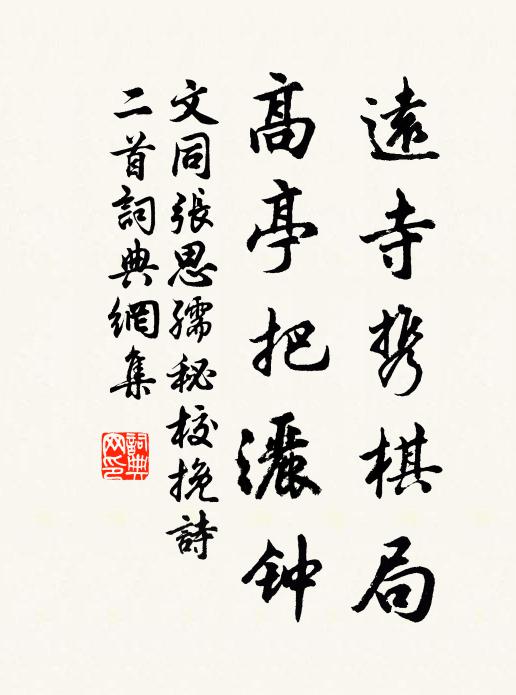 遠寺携棋局
高亭把灑钟
文同張思孺秘校挽詩
二首詞典網集
詞典网印